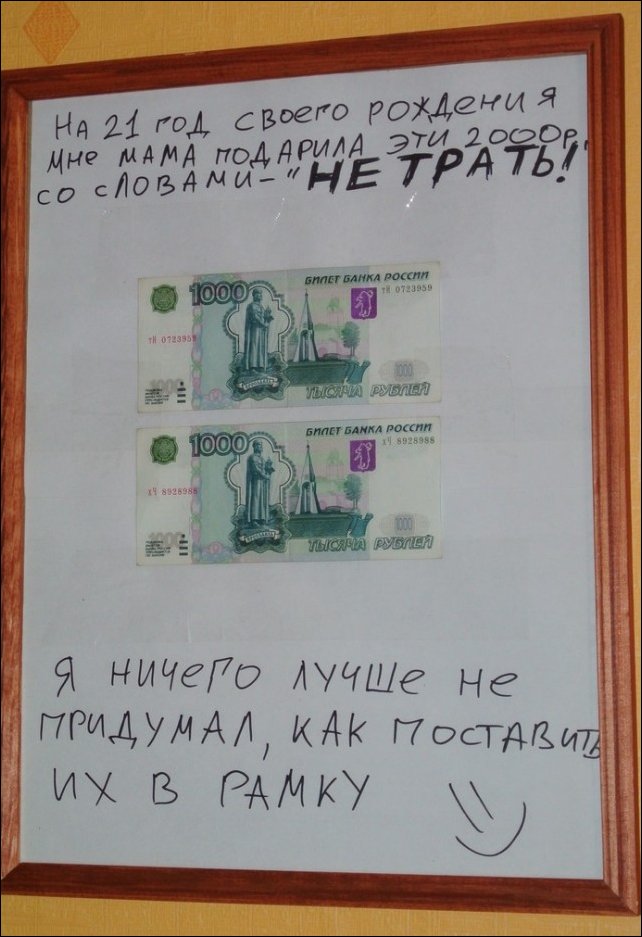 На 21 год своего рождения
мне мама подарила эти 2000р.
со словами – "НЕ ТРАТЬ!
БИЛЕТ БАНКА РОССИИ
1000
тИ 0723959
тИ 0723959
1000
1000
ТЫСЯЧА РУБЛЕЙ
БИЛЕТ БАНКА РОССИИ
1000
хЧ 8928988
хЧ 8928988
1000
1000
ТЫСЯЧА РУБЛЕЙ
Я ничего лучше не
придумал, как поставить
их в рамку